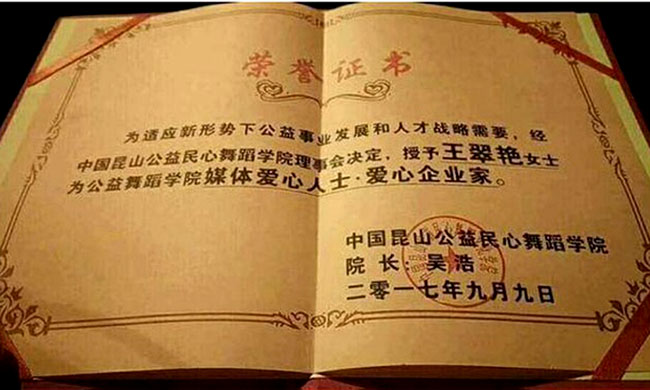 荣誉证书
为适应新形势下公益事业发展和人才战略需要，经
中国昆山公益民心舞蹈学院理事会决定，授予王翠艳女士
为公益舞蹈学院媒体爱心人士·爱心企业家。
中国昆山公益民心舞蹈学院
院 长：吴浩
二零一七年九月九日